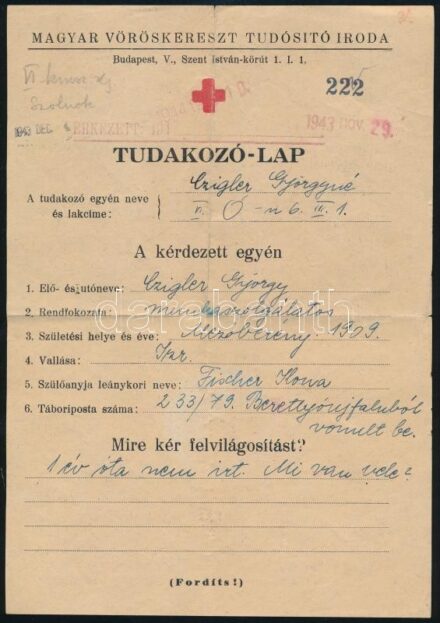 MAGYAR VÖRÖSKERESZT TUDÓSITÓ IRODA
Budapest, V., Szent István-körút 1. I. 1.
VI
Szolnok
222
1943 DEC
ÉRKEZETT
1943 NOV. 29.
TUDAKOZÓ-LAP
A tudakozó egyén neve
és lakcime:
Czigler Györgyné
VI. Ó-u 6. III. 1.
A kérdezett egyén
1. Elő- és utóneve: Czigler György
2. Rendfokozata: munkaszolgálatos
3. Születési helye és éve: Mezőberény 1909.
4. Vallása: Izr.
5. Szülőanyja leánykori neve: Fischer Ilona
6. Táboriposta száma: 233/79. Berettyóújfaluból
vonult be.
Mire kér felvilágosítást?
1 év óta nem irt. Mi van vele?
(Fordits!)
darabanth